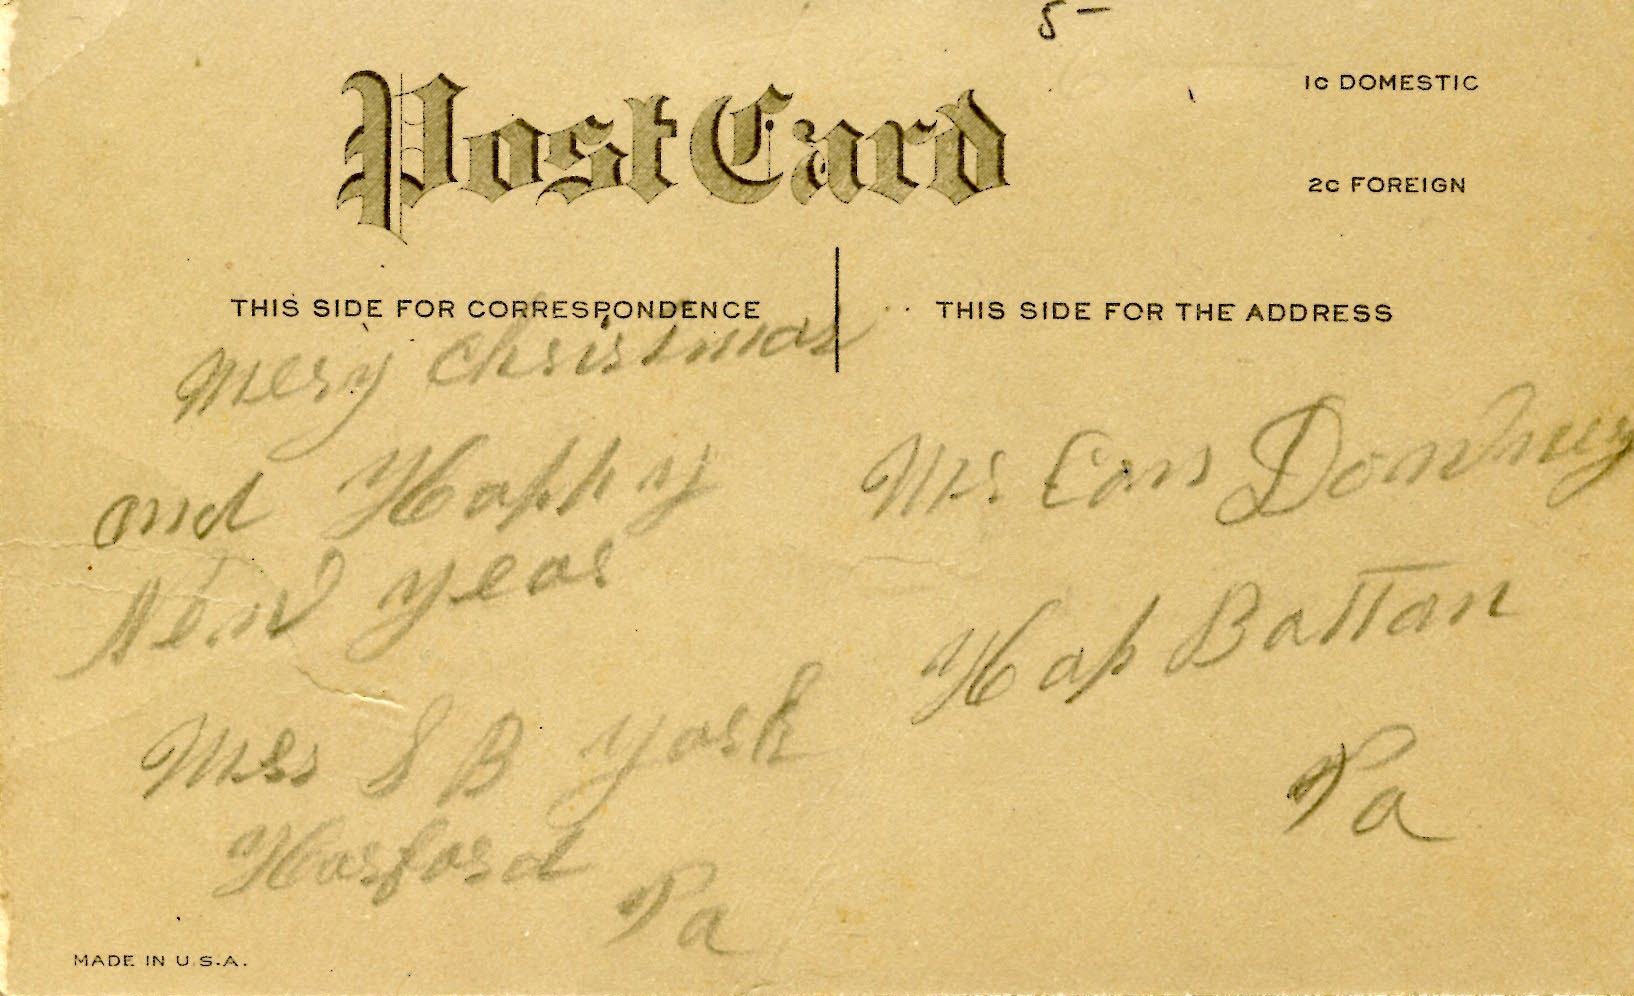 5-
Post Card
1c DOMESTIC
2c FOREIGN
THIS SIDE FOR CORRESPONDENCE
THIS SIDE FOR THE ADDRESS
Mery Christmas
and Happy
New Year
Mrs S B York
Harford
Pa
Downey
Hap Bottan
Pa
MADE IN U.S.A.